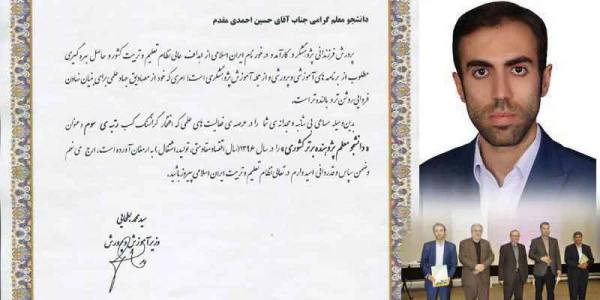 دانشجو معلم گرامی جناب آقای حسین احمدی مقدم
پرورش فرزندانی پژوهشگر و کارآمد و درخور نام ایران اسلامی از اهداف عالی نظام تعلیم و تربیت کشور و حاصل بهره گیری
مطلوب از برنامه های آموزشی و پرورشی و از جمله آموزش پژوهشگری است؛ امری که خود از مصادیق جهاد علمی برای بنیان نهادن
فردایی روشن تر و بالنده تر است.
بدین وسیله مساعی بی شائبه و مجدانه ی شما را در عرصه ی فعالیت های علمی که افتخار گرانسنگ کسب رتبه ی سوم با عنوان
«دانشجو معلم پژوهنده برتر کشوری» را در سال ۱۳۹۶ (سال اقتصاد مقاومتی، تولید، اشتغال) به ارمغان آورده است، ارج می نهم
و ضمن سپاس و قدردانی امیدوارم در تعالی نظام تعلیم و تربیت ایران اسلامی پیروز باشید.
سید محمد بطحایی
وزیر آموزش و پرورش